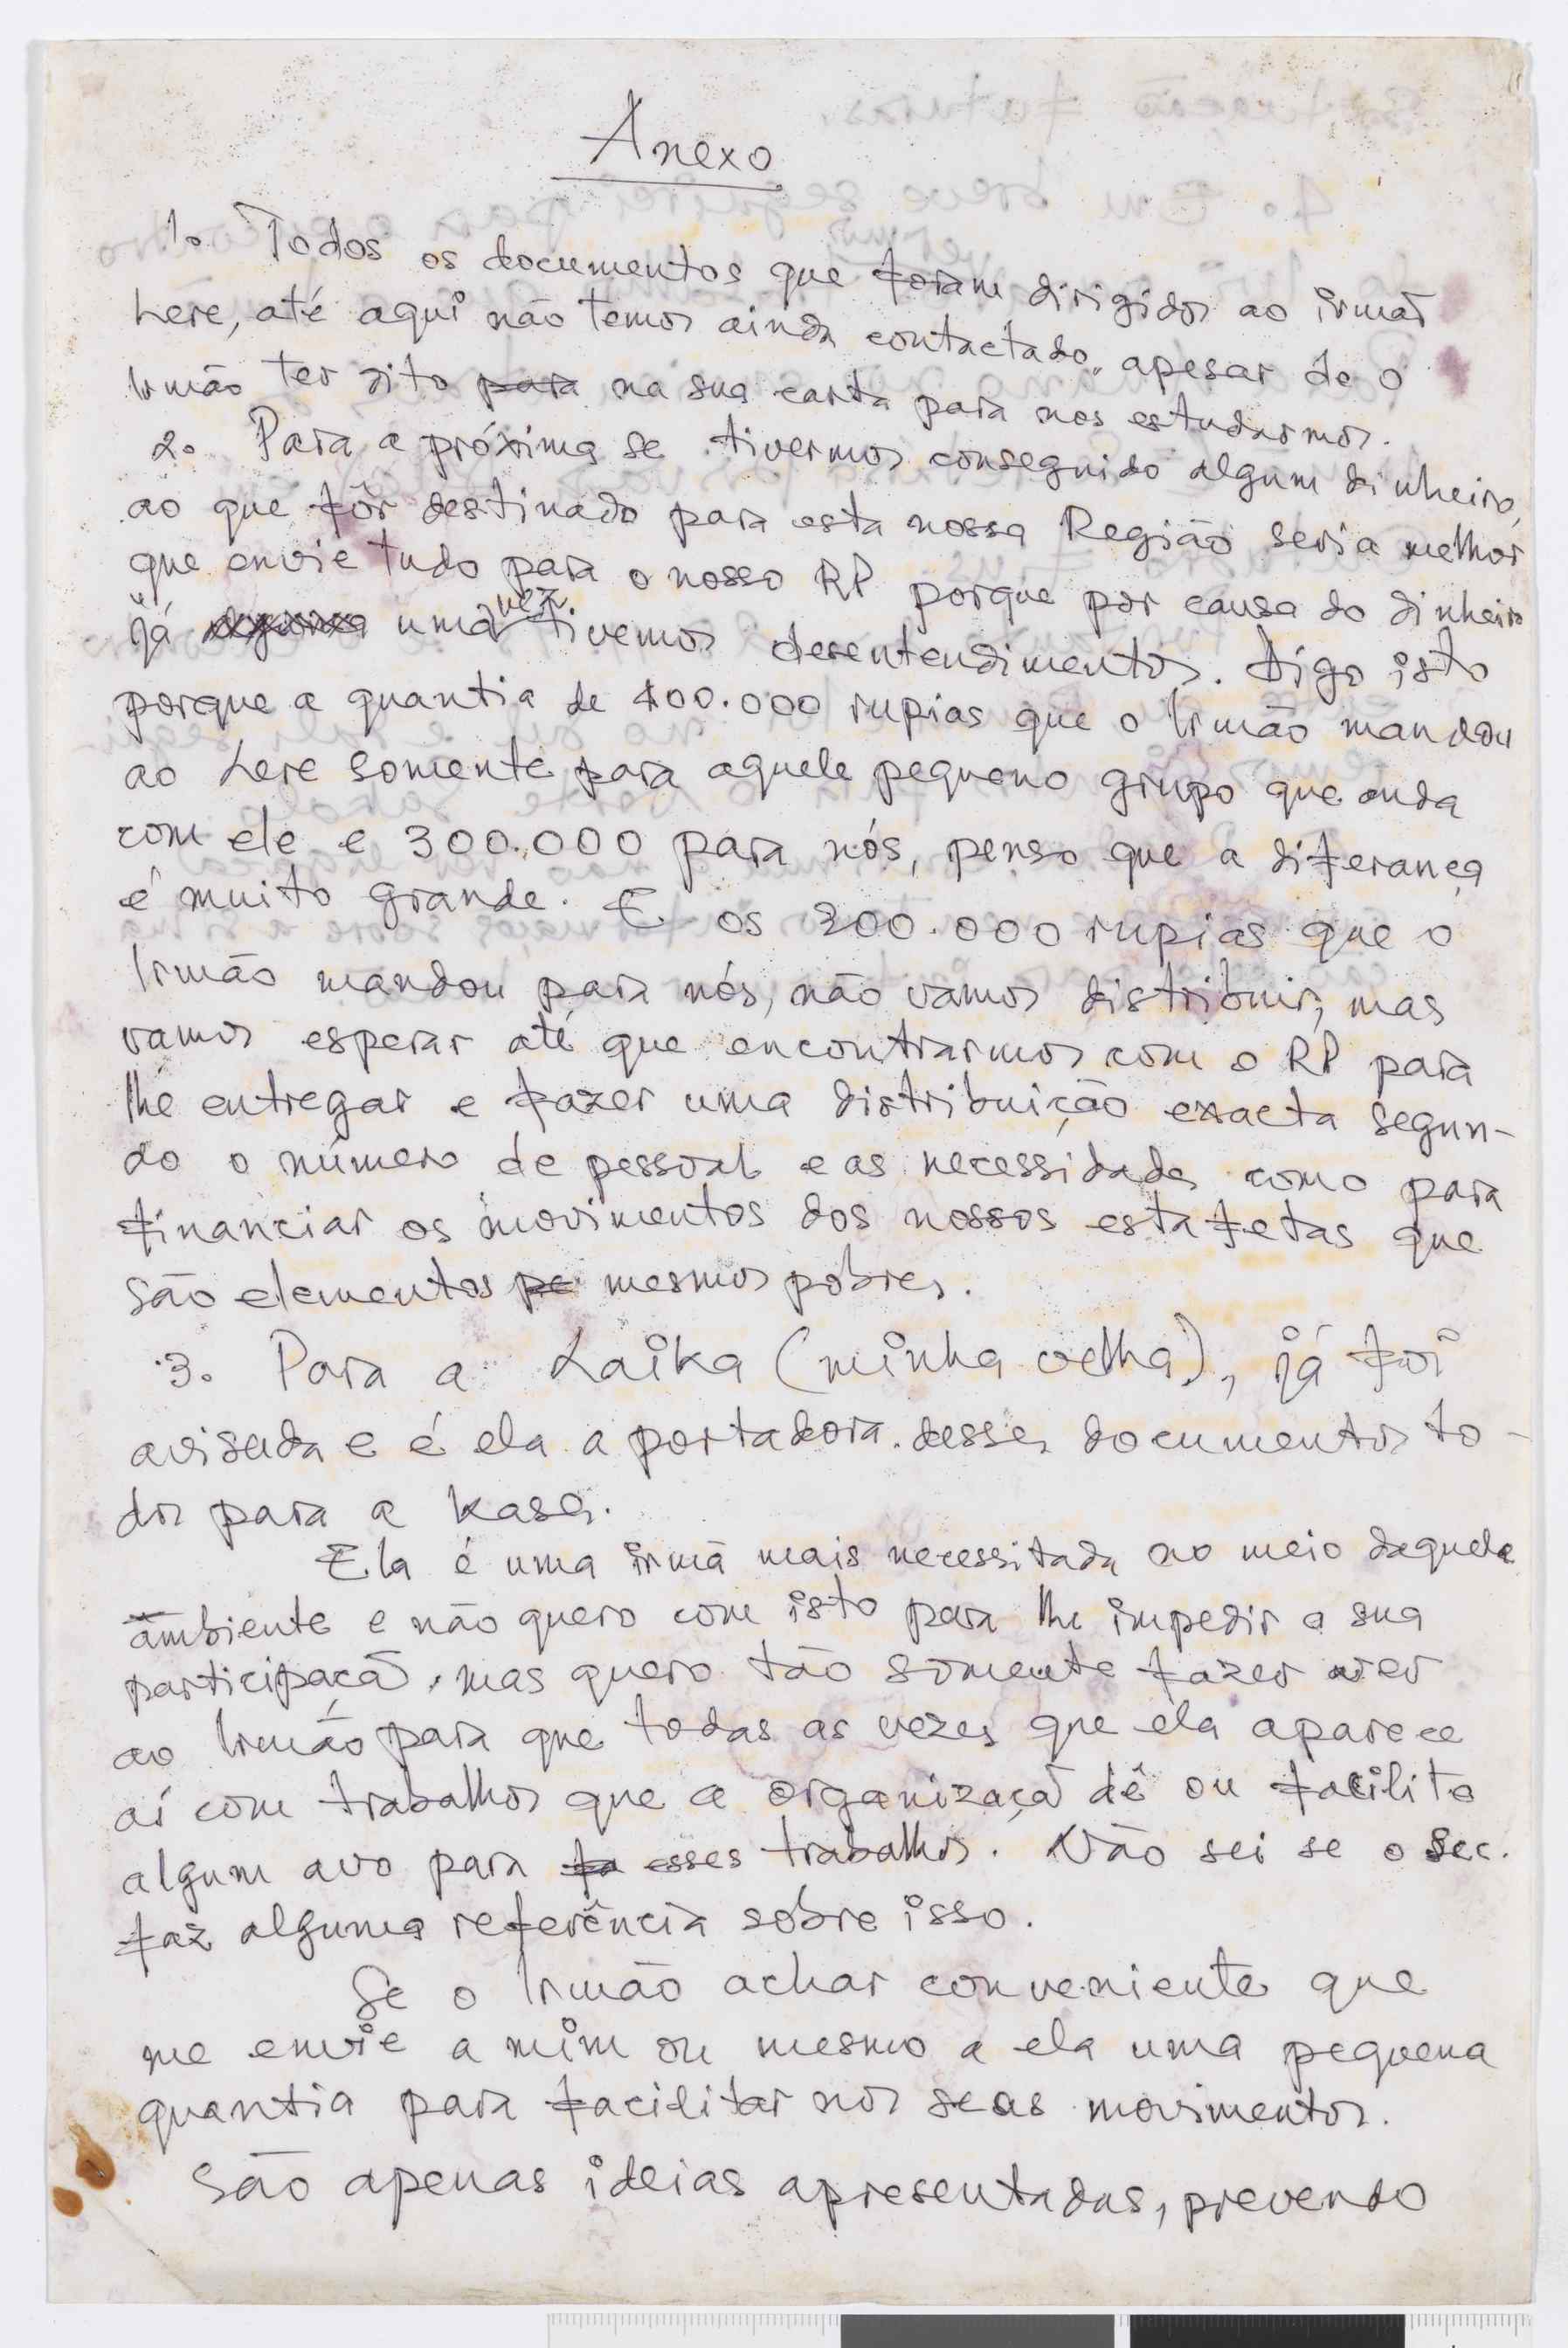 Anexo
1. Todos os documentos que foram dirigidos ao irmão
Lere, até aqui não temos ainda contactado, apesar de o
Irmão ter dito para na sua carta para nos estudarmos.
2. Para a próxima se tivermos conseguido algum dinheiro,
ao que fôr destinado para esta nossa Região, seria melhor
que envie tudo para o nosso RP porque por causa do dinheiro
já uma vez tivemos desentendimentos. Digo isto
porque a quantia de 400.000 rupias que o Irmão mandou
ao Lere somente para aquele pequeno grupo que anda
com ele e 300.000 para nós, penso que a diferança
é muito grande. E os 300.000 rupias que o
Irmão mandou para nós, não vamos distribuir, mas
vamos esperar até que encontrarmos com o RP para
lhe entregar e fazer uma distribuição exacta segun-
do o número de pessoal e as necessidades como para
financiar os movimentos dos nossos estafetas que
são elementos pe mesmos pobres.
3. Para a Laika (minha velha), já foi
avisada e é ela a portadora desses documentos to-
dos para a kasa.
Ela é uma irmã mais necessitada ao meio daquele
ambiente e não quero com isto para lhe impedir a sua
participaçã, mas quero tão somente fazer ver
ao Irmão para que todas as vezes que ela aparece
aí com trabalhos que a organizaçã dê ou facilite
algum avo para fa esses trabalhos. Não sei se o Sec.
faz alguma referência sobre isso.
Se o Irmão achar conveniente que
me envie a mim ou mesmo a ela uma pequena
quantia para facilitar nos seas movimentos.
São apenas ideias apresentadas, prevendo